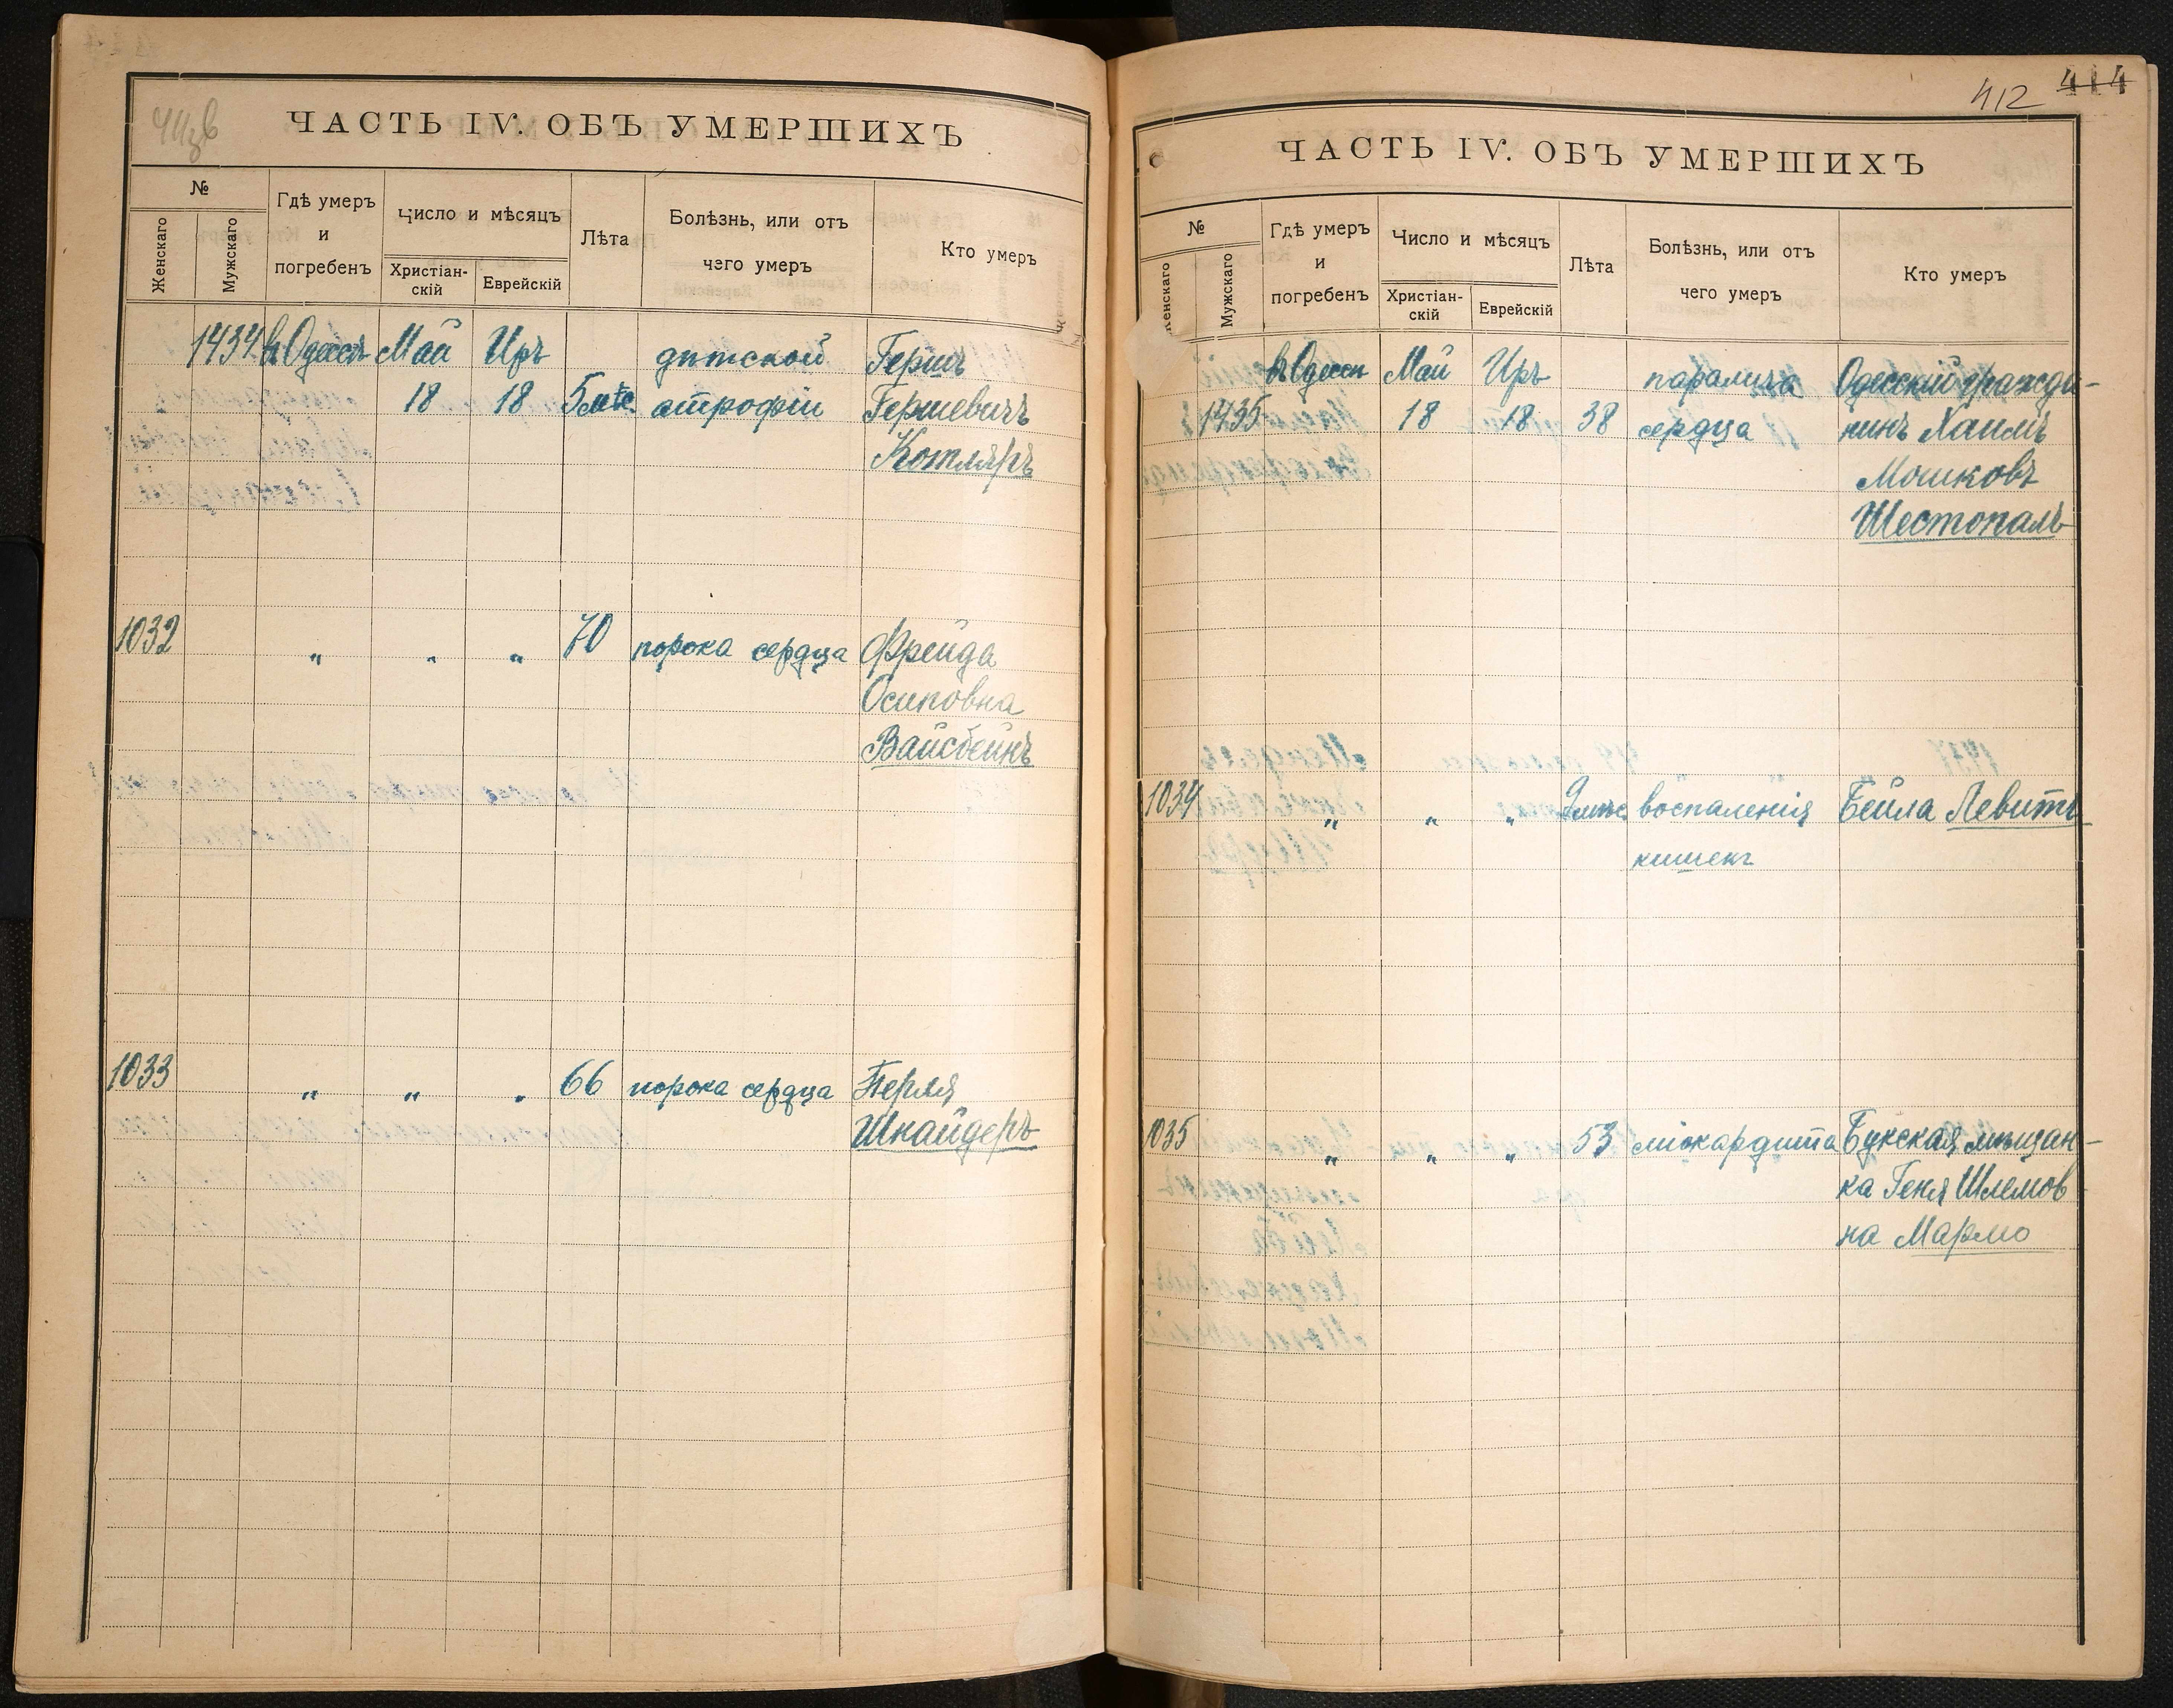 ЧАСТЬ IV. ОБЪ УМЕРШИХЪ
№
Женскаго
Мужскаго
Гдѣ умеръ
и
погребенъ
Число и мѣсяцъ
Христіан-
скій
Еврейскій
Лѣта
Болѣзнь, или отъ
чего умеръ
Кто умеръ
1434 въ Одессѣ Май Иръ дѣтской Гершъ
18 18 5 мѣс. атрофіи Гершевичъ
Котляръ
1032 „ „ „ 70 порока сердца Фрейда
Осиповна
Вайсбейнъ
1033 „ „ „ 66 порока сердца Перля
Шнайдеръ
412 414
ЧАСТЬ IV. ОБЪ УМЕРШИХЪ
№
Женскаго
Мужскаго
Гдѣ умеръ
и
погребенъ
Число и мѣсяцъ
Христіан-
скій
Еврейскій
Лѣта
Болѣзнь, или отъ
чего умеръ
Кто умеръ
въ Одессѣ Май Иръ паралича Одесскій гражда-
1435 18 18 38 сердца нинъ Хаимъ
Мошковъ
Шестопалъ
1034 „ „ „ мѣс. воспаленія Бейла Левитъ
кишекъ
1035 „ „ „ 53 міокардита Букская мѣщан-
ка Геня Шлемов-
на Мармо